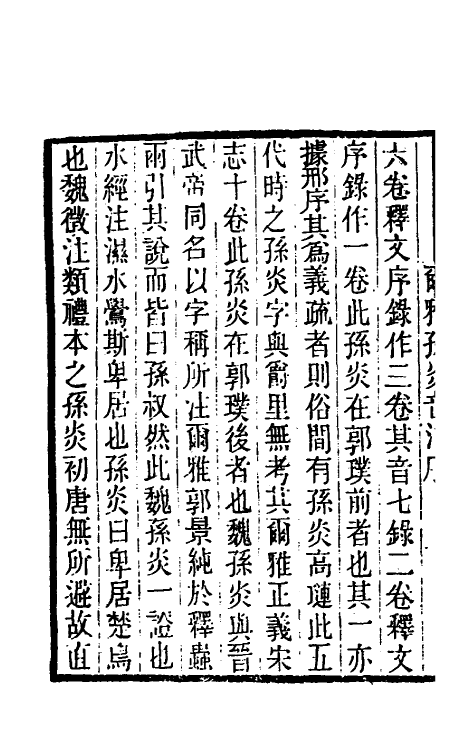 六卷釋文序錄作三卷其音七錄二卷釋文
序錄作一卷此孫炎在郭璞前者也其一亦
據邢序其爲義疏者則俗間有孫炎高璉此五
代時之孫炎字與爵里無考其爾雅正義宋
志十卷此孫炎在郭璞後者也魏孫炎與晉
武帝同名以字稱所注爾雅郭景純於釋蟲
雨引其說而皆曰孫叔然此魏孫炎一證也
水經注濕水鸒斯卑居也孫炎曰卑居楚烏
也魏徵注類禮本之孫炎初唐無所避故直